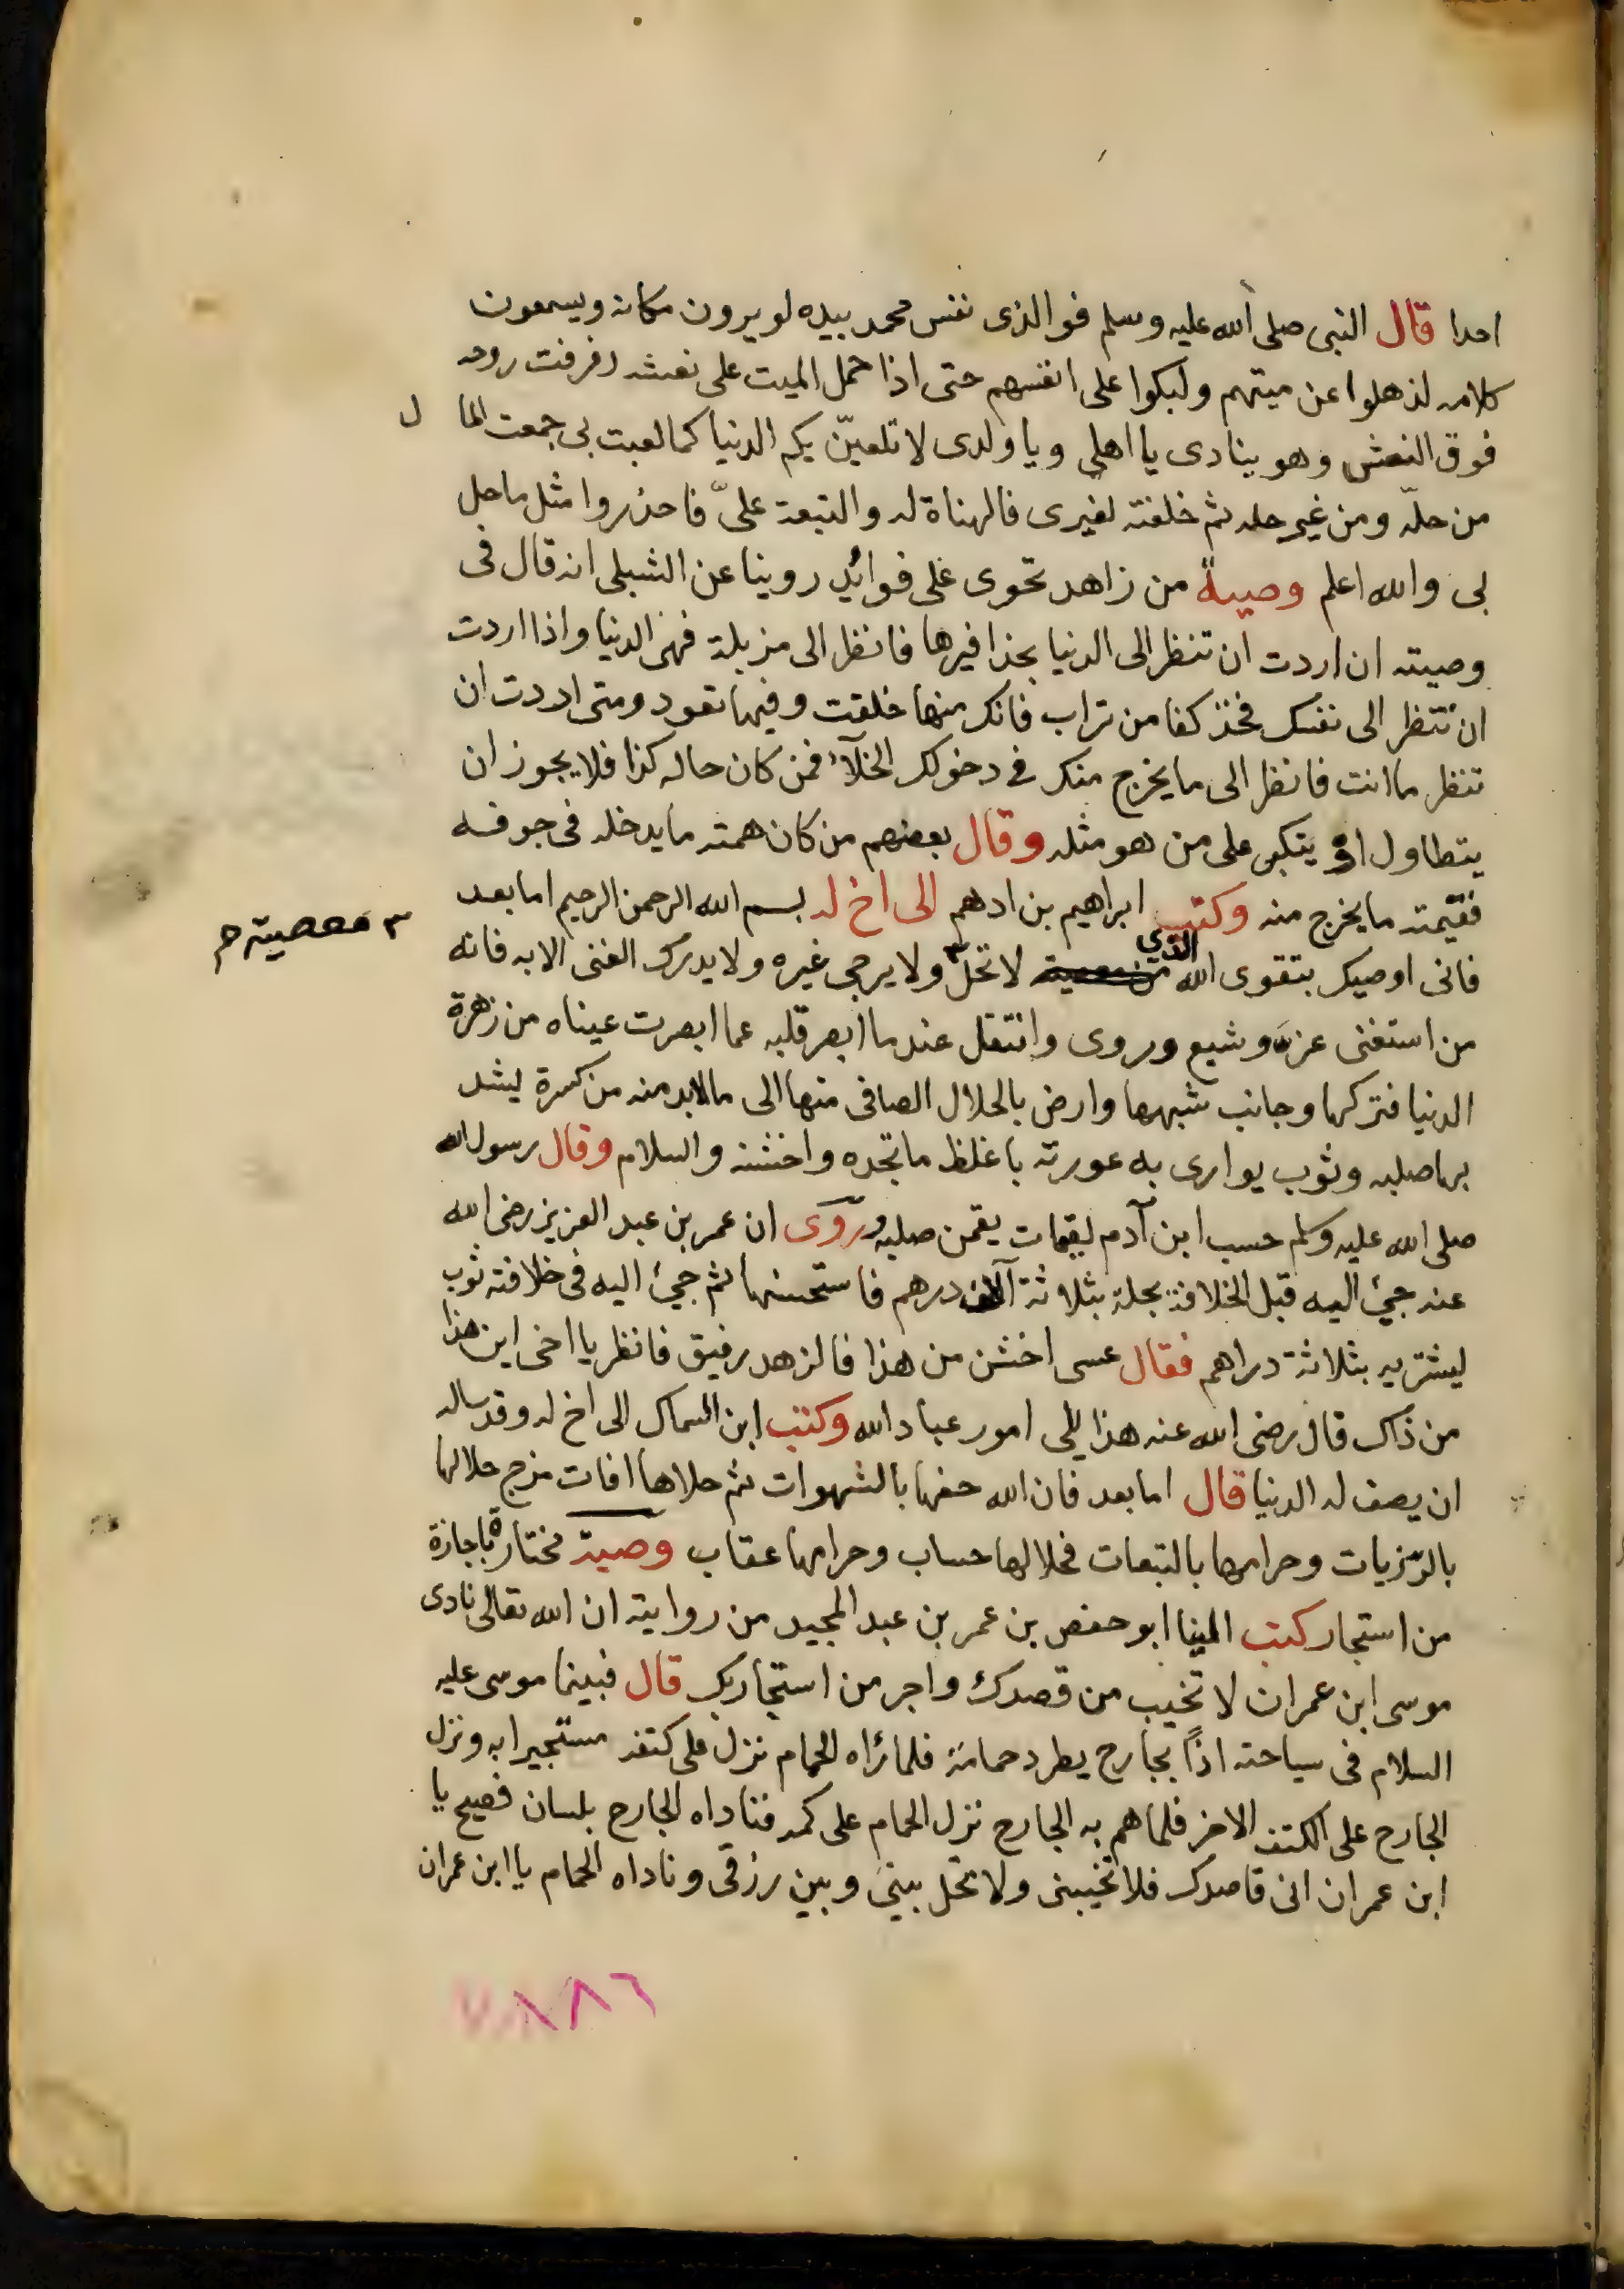 احدا قال النبى صلى الله عليه وسلم فوالذى نفس محمد بيده لو يرون مكانه ويسمعون
كلامه لذهلوا عن ميتهم ولبكوا على انفسهم حتى اذا حمل الميت على نعشه رفرفت روحه
فوق النعش وهو ينادى يا اهلى ويا ولدى لا تلعبنّ بكم الدنيا كما لعبت بى جمعت المال
من حلّه ومن غير حله ثم خلفته لغيرى فالهناة له والتبعة علىّ فاحذروا مثل ما حل
بى والله اعلم وصية من زاهد تحوى على فوائد روينا عن الشبلى انه قال فى
وصيته ان اردت ان تنظر الى الدنيا بحذافيرها فانظر الى مزبلة فهى الدنيا واذا اردت
ان تنظر الى نفسك فخذ كفا من تراب فانك منها خلقت وفيها تعود ومتى اردت ان
تنظر ما انت فانظر الى ما يخرج منك فى دخولك الخلآء فمن كان حاله كذا فلا يجوز ان
يتطاول او يتكبر على من هو مثله وقال بعضهم من كان همته ما يدخله فى جوفه
فقيمته ما يخرج منه وكتب ابراهيم بن ادهم الى اخ له بسم الله الرحمن الرحيم اما بعد
فانى اوصيك بتقوى الله الذي لا تحل ولا يرجى غيره ولا يدرك الغنى الا به فانه
معصيته
من استغنى عزه وشبع وروى وانتقل عندما ابصر قلبه عما ابصرت عيناه من زهرة
الدنيا فتركها وجانب شبهها وارض بالحلال الصافى منها الى مالابد منه من كسرة ليشد
بها صلبه وثوب يوارى به عورته باغلظ ما تجده واخشنه والسلام وقال رسول الله
صلى الله عليه وسلم حسب ابن آدم لقيمات يقمن صلبه وروى ان عمر بن عبد العزيز رضى الله
عنه جيئ اليه قبل الخلافة بحلة بثلاثة آلاف درهم فاستحسنها ثم جيئ اليه فى خلافته ثوب
ليشتريه بثلاثة دراهم فقال عسى اخشن من هذا فالزهد رفيق فانظر يا اخى اين هذا
من ذاك قال رضى الله عنه هذا للى امور عباد الله وكتب ابن السماك الى اخ له وقد ساله
ان يصف له الدنيا قال اما بعد فان الله حفها بالشهوات ثم حلاها افات مزج حلالها
بالرّزيات وحرامها بالتبعات فحلالها حساب وحرامها عقاب وصية مختارة باجازة
من استجار كتب الينا ابو حفص بن عمر بن عبد المجيد من روايته ان الله تعالى نادى
موسى ابن عمران لا تخيب من قصدك واجر من استجار بك قال فبينما موسى عليه
السلام فى سياحته اذاً بجارح يطرد حمامة فلما رٔاه الحمام نزل على كتفه مستجيرا به ونزل
الجارح على الكتف الاخر فلما هم به الجارح نزل الحمام على كمه فناداه الجارح بلسان فصيح يا
ابن عمران انى قاصدك فلا تخيبنى ولا تحل بينى وبين رزقى وناداه الحمام يا ابن عمران